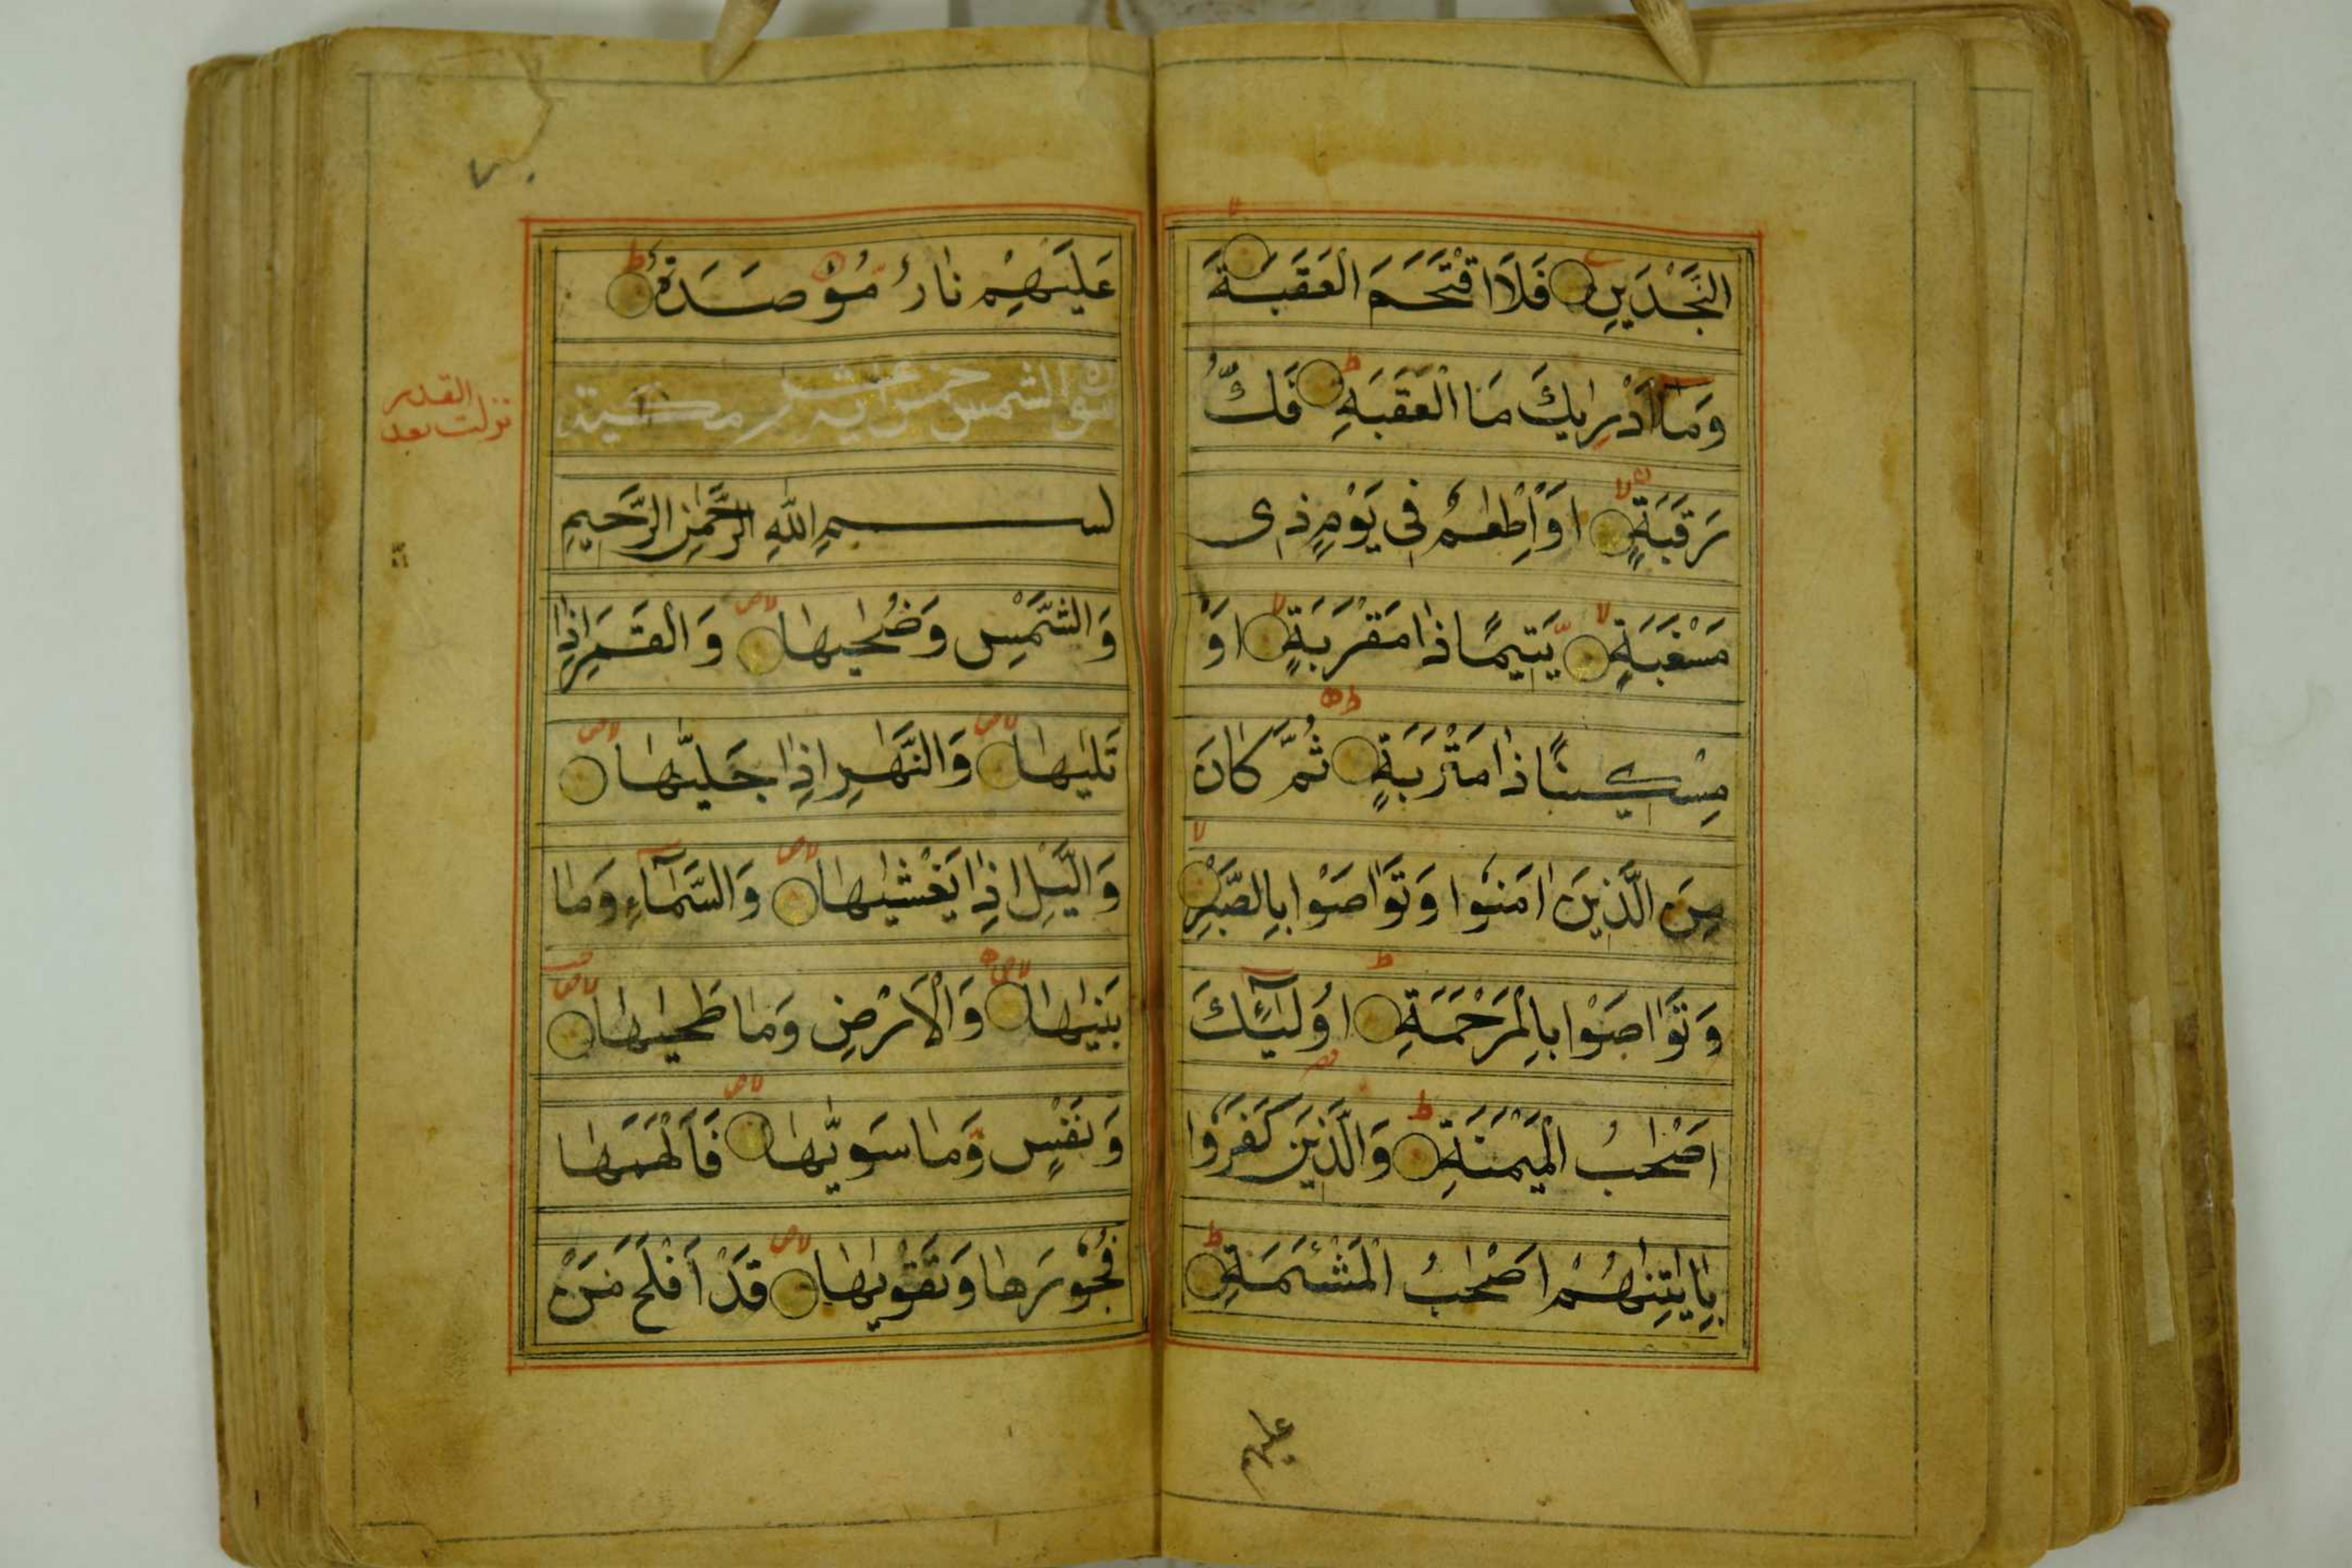 النَّجْدَيْنِ فَلَا اقْتَحَمَ الْعَقَبَةَ
وَمَا اَدْرٰيكَ مَا الْعَقَبَةِ فَكُّ
رَقَبَةٍ اَوْ اِطْعٰمٌ فِى يَوْمٍ ذِى
مَسْغَبَةٍ يَتِيمًا ذَا مَقْرَبَةٍ اَوْ
مِسْكِينًا ذَا مَتْرَبَةٍ ثُمَّ كَانَ
مِنَ الَّذِينَ اٰمَنُوا وَتَوَاصَوْا بِالصَّبْرِ
وَتَوَاصَوْا بِالْمَرْحَمَةِ اُولٰٓئِكَ
اَصْحٰبُ الْمَيْمَنَةِ وَالَّذِينَ كَفَرُوا
بِاٰيٰتِنَا هُمْ اَصْحٰبُ الْمَشْئَمَةِ
عليهم
٧٠
عَلَيْهِمْ نَارٌ مُؤْصَدَةٌ
سورة الشمس خمس عشر اية مكية
نزلت بعد القدر
بسم اللّٰهِ الرَّحْمٰنِ الرَّحِيمِ
وَالشَّمْسِ وَضُحٰيهَا وَالْقَمَرِ اِذَا
تَلٰيهَا وَالنَّهَارِ اِذَا جَلّٰيهَا
وَالَّيْلِ اِذَا يَغْشٰيهَا وَالسَّمَآءِ وَمَا
بَنٰيهَا وَالْاَرْضِ وَمَا طَحٰيهَا
وَنَفْسٍ وَّمَا سَوّٰيهَا فَاَلْهَمَهَا
فُجُورَهَا وَتَقْوٰيهَا قَدْ اَفْلَحَ مَنْ